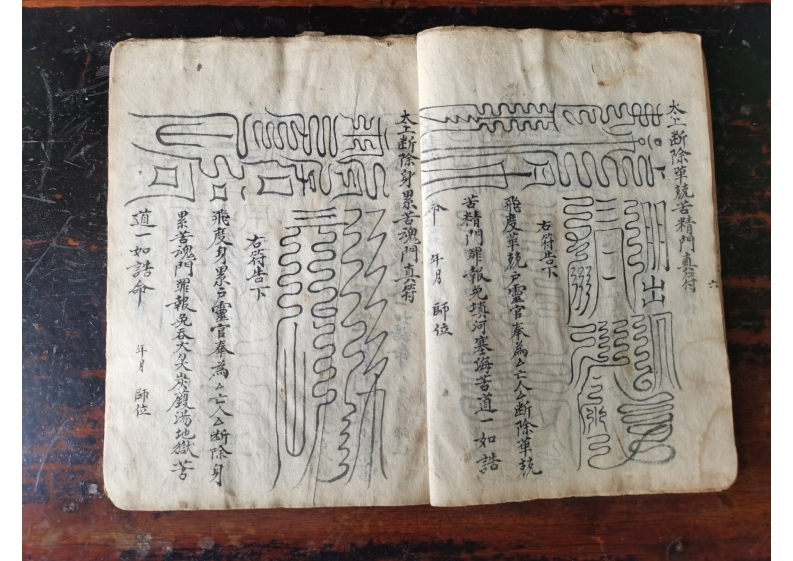 太上断除華競苦精門真符
六
右符告下
飛度華競戶靈官奉為厶亡人厶断除華競
苦精門罪報免填河塞海苦道一如誥
命 年月 師位
太上断除身累苦魂門真符
右符告下
飛度身累戶靈官奉為厶亡人厶断除身
累苦魂門罪報免吞火食炭鑊湯地獄苦
道一如誥命 年月 師位